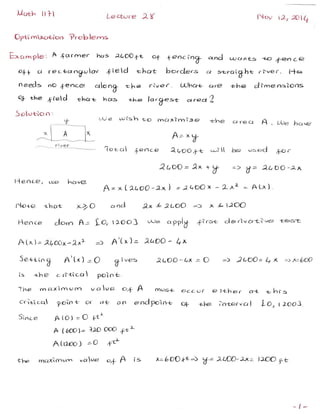 Math 1171 Lecture 28 Nov 12, 2014
Optimisation Problems
Example: A farmer has 2600 ft of fencing and wants to fence
off a rectangular field that borders a straight river. He
needs no fence along the river. What are the dimensions
of the field that has the largest area?
Solution:
y
x A x
river
We wish to maximise the area A. We have
A = xy
Total fence 2400 ft will be used for
2400 = 2x + y => y = 2400 - 2x
Hence, we have
A = x(2400 - 2x) = 2400x - 2x² = A(x).
Note that x ≥ 0 and 2x ≤ 2400 => x ≤ 1200
Hence dom A = [0, 1200] We apply first derivative test
A(x) = 2400x - 2x² => A'(x) = 2400 - 4x
Setting A'(x) = 0 gives 2400 - 4x = 0 => 2400 = 4x => x = 600
is the critical point.
The maximum value of A must occur either at this
critical point or at an endpoint of the interval [0, 1200].
Since A(0) = 0 ft²
A(600) = 720 000 ft²
A(1200) = 0 ft²
the maximum value of A is x = 600 ft => y = 2400 - 2x = 1200 ft
- 1 -